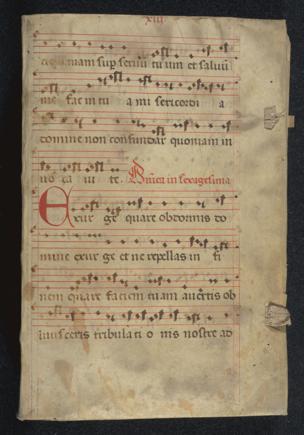 xiii
quam sup servū tuum et salvū
me fac in tu a mi sericordi a
domine non confundar quoniam in
vo ca vi te Dñica in sexagesima
Exur ge quare obdormis do
mine exur ge et ne repellas in fi
nem quare faciem tuam avertis ob
livisceris tribula ti o nis nostre ad